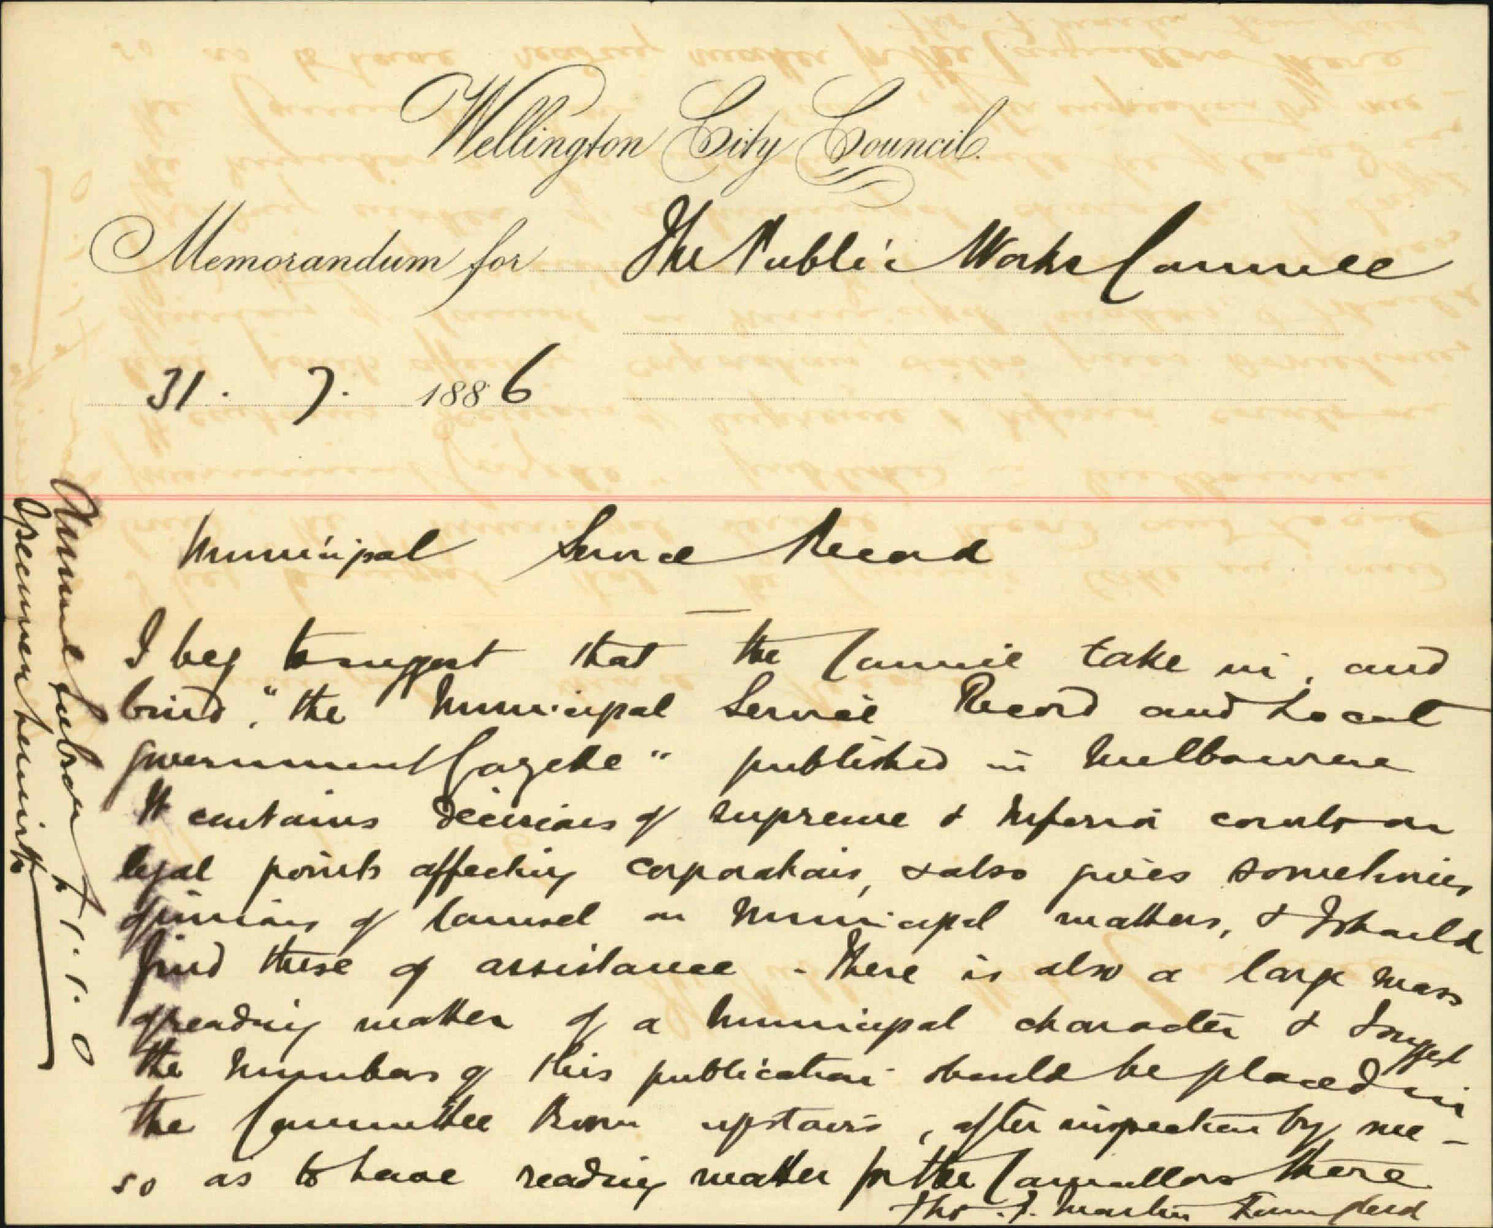 Wellington City Council.
Memorandum for The Public Works Committee
31. 7. 1886
Municipal Service Record
I beg to suggest that the Council take in, and
bind, "the Municipal Service Record and Local
Government Gazette" published in Melbourne
It contains decisions of supreme & inferior courts on
legal points affecting corporations, & also gives sometimes
opinions of Counsel on Municipal matters, & I should
find these of assistance - There is also a large mass
of reading matter of a Municipal character & I suggest
the numbers of this publication should be placed in
the Committee Room upstairs, after inspection by me -
so as to have reading matter for the Councillors there
Tho. F. Martin Town Clerk
Annual Subscn £1.1.0
Specimen herewith